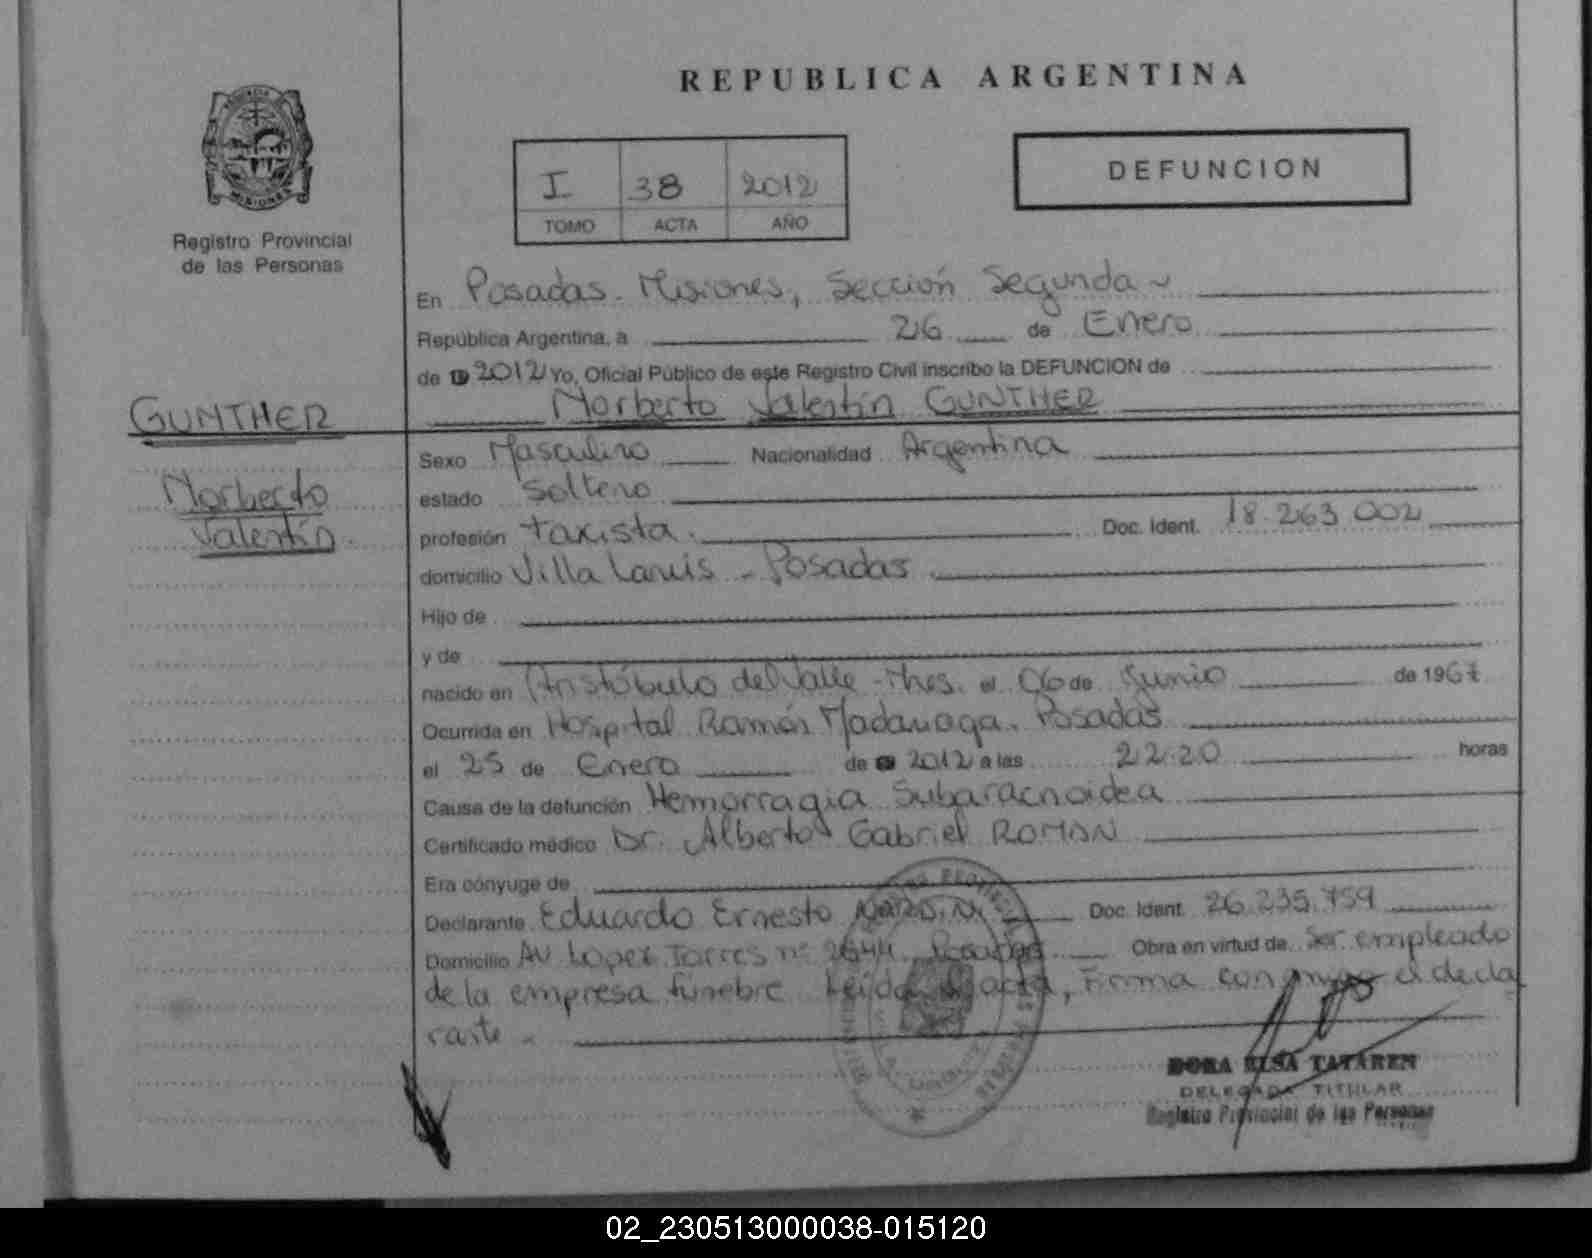 REPUBLICA ARGENTINA
PROVINCIA DE
MISIONES
Registro Provincial
de las Personas
I 38 2012
TOMO ACTA AÑO
DEFUNCION
En Posadas - Misiones, Sección Segunda
República Argentina, a 26 de Enero
de 2012 Yo, Oficial Público de este Registro Civil inscribo la DEFUNCION de
Norberto Valentín GUNTHER
GUNTHER
Norberto
Valentín
Sexo Masculino Nacionalidad Argentina
estado Soltero
profesión taxista. Doc. Ident. 18.263.002
domicilio Villa Lanus - Posadas
Hijo de
y de
nacido en Aristóbulo del Valle - Mnes. el 06 de Junio de 1967
Ocurrida en Hospital Ramón Madariaga. Posadas
el 25 de Enero de 2012 a las 22.20 horas
Causa de la defunción Hemorragia Subaracnoidea
Certificado médico Dr. Alberto Gabriel ROMAN
Era cónyuge de
Declarante Eduardo Ernesto Doc. Ident. 26.235.759
Domicilio AV Lopez Torres nº 2644 Posadas Obra en virtud de Ser empleado
de la empresa fúnebre Leída el acta, Firma conmigo el decla
rante -
DORA ELSA TATAREN
DELEGADA TITULAR
Registro Provincial de las Personas
02_230513000038-015120